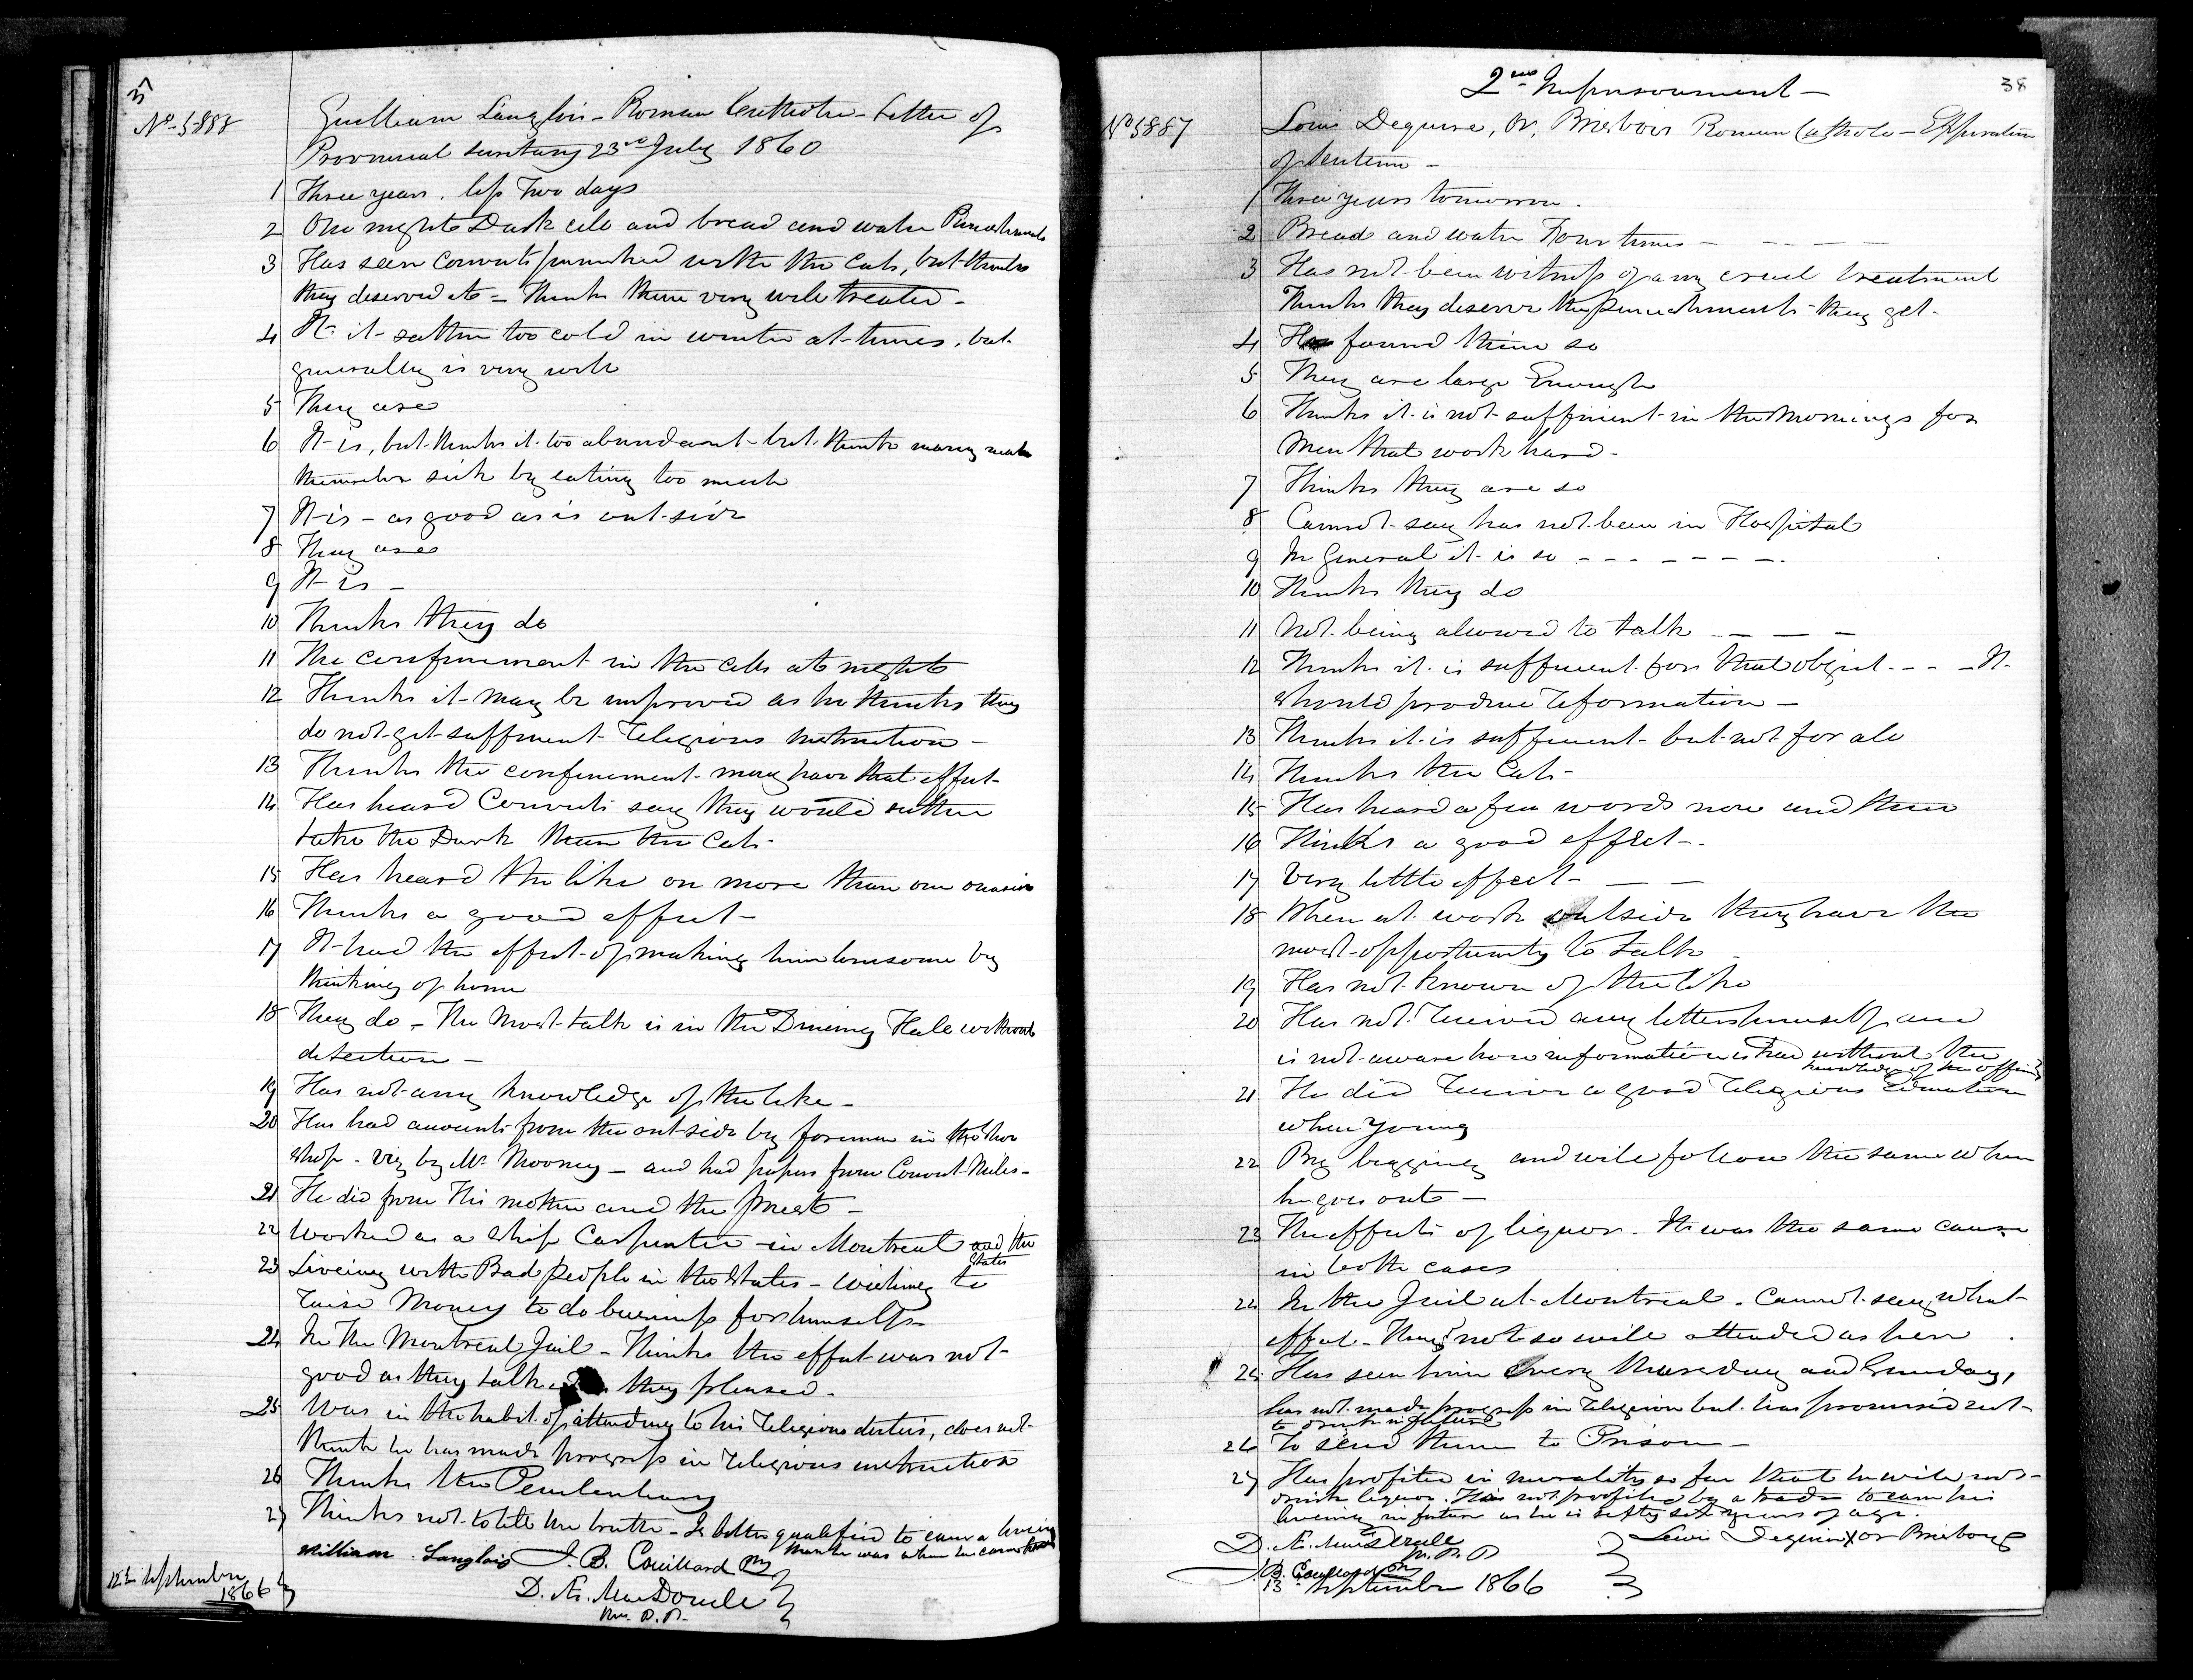 37
No. 5888
Guilliaum Langlois - Roman Catholic - Letter of
Provincial Secretary 23rd July 1860
1 Three years, less Two days
2 One night Dark cell and bread and water Punishments
3 Has seen Convicts punished with the Cats, but thinks
they deserved it = Thinks them very well treated -
4 It is rather too cold in winter at times, but
generally is very well
5 They are
6 It is, but thinks it too abundant but thinks many make
themselves sick by eating too much
7 It is - as good as is out-side
8 They are
9 It is -
10 Thinks they do
11 The confinement in the cells at night
12 Thinks it may be improved as he thinks they
do not get sufficient Religious instruction -
13 Thinks the confinement may have that effect
14 Has heard Convicts say they would rather
take the Dark than the Cats -
15 Has heard the like on more than one occasion
16 Thinks a good effect -
17 It had the effect of making him lonesome by
thinking of home
18 They do - The most talk is in the Dineing Hall without
detection -
19 Has not any knowledge of the like -
20 Has had accounts from the out-side by foreman in the Shoe
shop - viz by Mr Mooney - and had papers from Convict Miles -
21 He did from His mother and the Priest -
22 Worked as a Ship Carpenter in Montreal and the
States
23 Liveing with Bad people in the States - wishing to
raise Money to do business for himself -
24 In the Montreal Jail - Thinks the effect was not
good as they talk as they pleased -
25 Was in the habit of attending to his religious duties, does not
think he has made progress in religious instruction
26 Thinks the Penitentiary
27 Thinks not to tell the truth - Is better qualified to earn a living
than he was when he came here
William Langlois J. B. Couillard
12th September
1866
D. Æ. MacDonell
38
2nd Imprisonment -
No 5887
Louis Dequire, or, Brisbois Roman Catholic - Expiration
of Sentence -
1 Three years tomorrow.
2 Bread and water Four times - - - - -
3 Has not been witness of any cruel treatment
Thinks they deserve the punishments they get -
4 Has found them so
5 They are large Enough
6 Thinks it is not sufficient in the Mornings for
Men that work hard -
7 Thinks they are so
8 Cannot say has not been in Hospital
9 In General it is so - - - - - - -
10 Thinks they do
11 Not being allowed to talk - - - -
12 Thinks it is sufficient for that object - - - It
should produce reformation -
13 Thinks it is sufficient but not for all
14 Thinks the Cats -
15 Has heard a few words now and then
16 Thinks a good effect -
17 Very little effect - - -
18 When at work outside they have the
most opportunity to talk -
19 Has not known of the like
20 Has not received any letters himself and
is not aware how information is had without the
knowledge of the officers
21 He did receive a good religious Education
when young
22 By begging and will follow the same when
he goes out -
23 The effects of liquor - It was the same cause
in both cases
24 In the Jail at Montreal - Cannot say what
effect - They not so well attended as here
25 Has seen him Every thursday and Sunday,
has not made progress in religion but has promised not
to drink in future
26 To send them to Prison -
27 Has profited in morality so far that he will not
drink liquor. Has not profited by a trade to earn his
liveing in future as he is fifty six years of age.
Lewis Dequire X or Brisbois
D. Æ. MacDonell
J. B. Couillard
13 September 1866